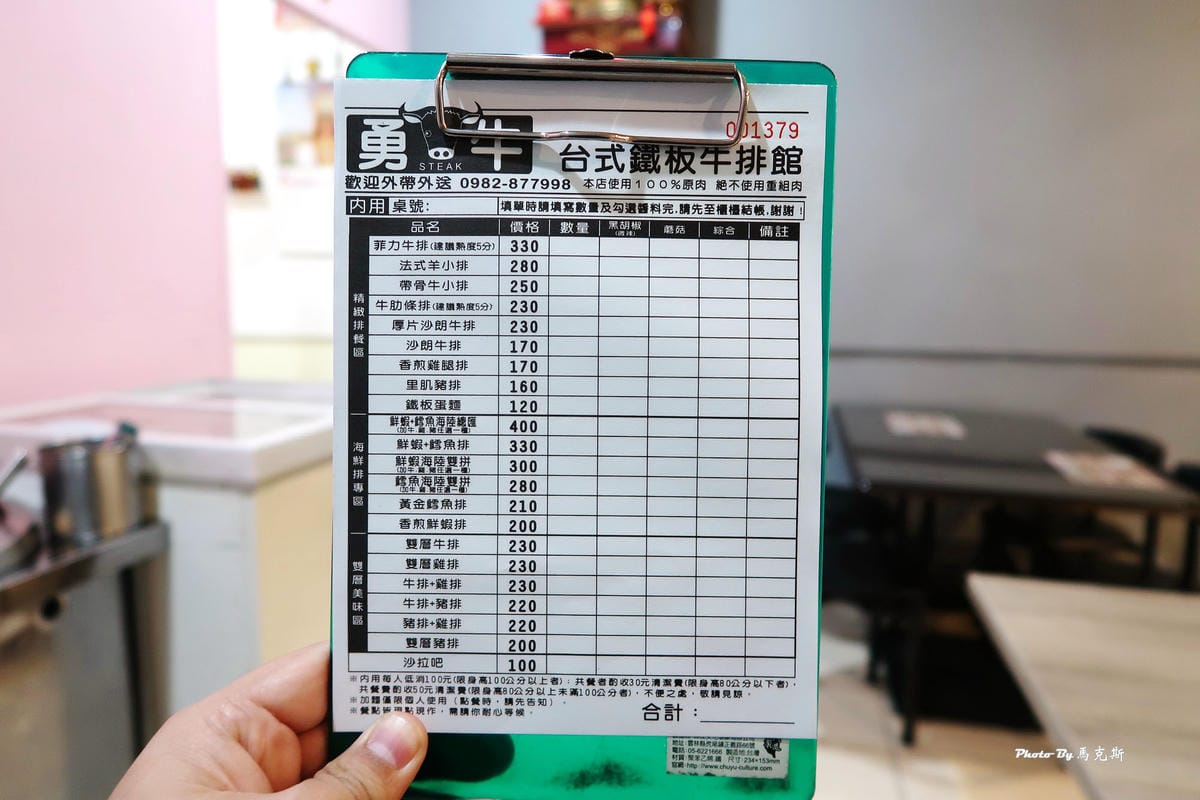 001379
勇 牛
STEAK
台式鐵板牛排館
歡迎外帶外送 0982-877998 本店使用100%原肉 絕不使用重組肉
內用 桌號: 填單時請填寫數量及勾選醬料完,請先至櫃檯結帳,謝謝!
品名 價格 數量 黑胡椒(微辣) 蘑菇 綜合 備註
精緻排餐區
菲力牛排(建議熟度5分) 330
法式羊小排 280
帶骨牛小排 250
牛肋條排(建議熟度5分) 230
厚片沙朗牛排 230
沙朗牛排 170
香煎雞腿排 170
里肌豬排 160
鐵板蛋麵 120
海鮮排專區
鮮蝦+鱈魚海陸總匯 400
(加牛.雞.豬任選一種)
鮮蝦+鱈魚排 330
鮮蝦海陸雙拼 300
(加牛.雞.豬任選一種)
鱈魚海陸雙拼 280
(加牛.雞.豬任選一種)
黃金鱈魚排 210
香煎鮮蝦排 200
雙層美味區
雙層牛排 230
雙層雞排 230
牛排+雞排 230
牛排+豬排 220
豬排+雞排 220
雙層豬排 200
沙拉吧 100
※內用每人低消100元(限身高100公分以上者);共餐者酌收30元清潔費(限身高80公分以下者),
共餐費酌收50元清潔費(限身高80公分以上未滿100公分者),不便之處,敬請見諒。
※加麵僅限個人使用(點餐時,請先告知)。
※餐點皆現點現作,需請你耐心等候。
合計:
地址:雲林縣虎尾鎮正義路66號
電話:05-6221666 製造地:台灣
材質:聚苯乙烯,鐵 尺寸:234×153mm
官網:http://www.chuyu-culture.com
Photo By 馬克斯